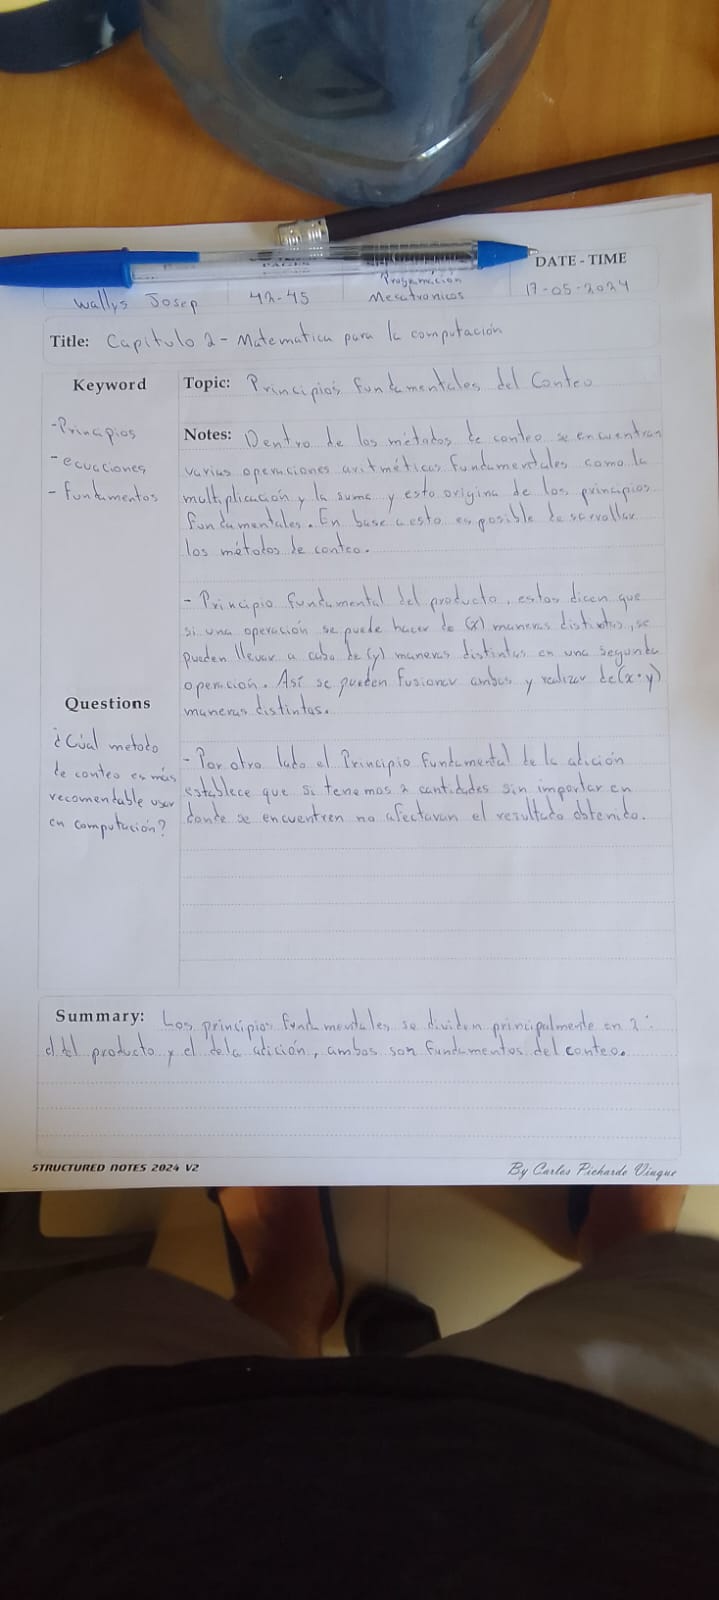 PAGES
DATE - TIME
Wallys Josep
42-45
Programación
Mecatronicos
17-05-2024
Title: Capitulo 2 - Matematica para la computación
Keyword
- Principios
- ecuaciones
- fundamentos
Questions
¿Cúal metodo
de conteo es más
recomendable usar
en computación?
Topic: Principios Fundamentales del Conteo
Notes: Dentro de los métodos de conteo se encuentran
varias operaciones aritméticas fundamentales como la
multiplicación y la suma y esto origina de los principios
fundamentales. En base a esto es posible desarrollar
los métodos de conteo.
- Principio fundamental del producto, estos dicen que
si una operación se puede hacer de (x) maneras distintas, se
pueden llevar a cabo de (y) maneras distintas en una segunda
operación. Así se pueden fusionar ambas y realizar de (x·y)
maneras distintas.
- Por otro lado el Principio Fundamental de la adición
establece que si tenemos 2 cantidades sin importar en
donde se encuentren no afectaran el resultado obtenido.
Summary: Los principios fundamentales se dividen principalmente en 2:
el del producto y el de la adición, ambos son fundamentos del conteo.
STRUCTURED NOTES 2024 V2
By Carlos Pichardo Viuque